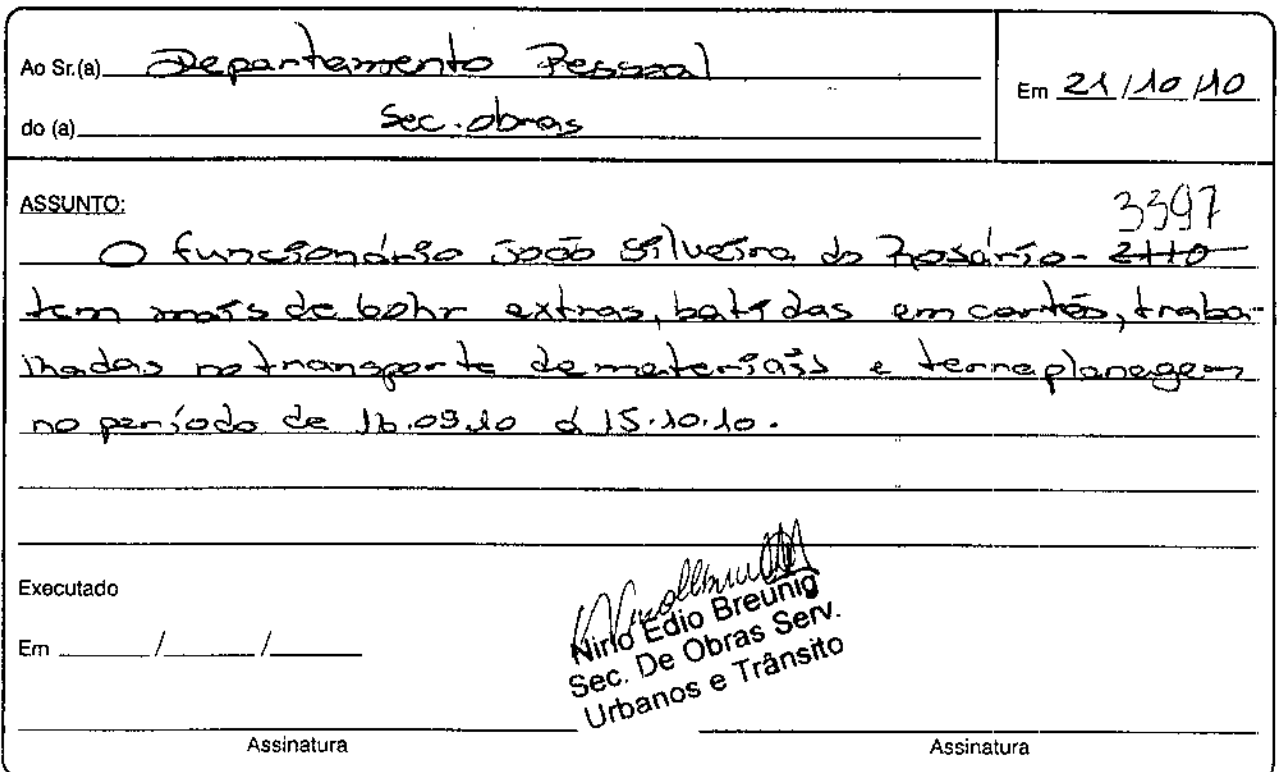 Ao Sr.(a) Departamento Pessoal
Em 21/10/10
do (a) Sec. obras
ASSUNTO:
3397
O funcionário João Silveira do Rosário - 2110
tem mais de 60hr extras, batidas em cartão, traba-
lhadas no transporte de materiais e terraplanagem
no período de 16.09.10 á 15.10.10.
Executado
Em / /
Nirio Edio Breunig
Sec. De Obras Serv.
Urbanos e Trânsito
Assinatura
Assinatura